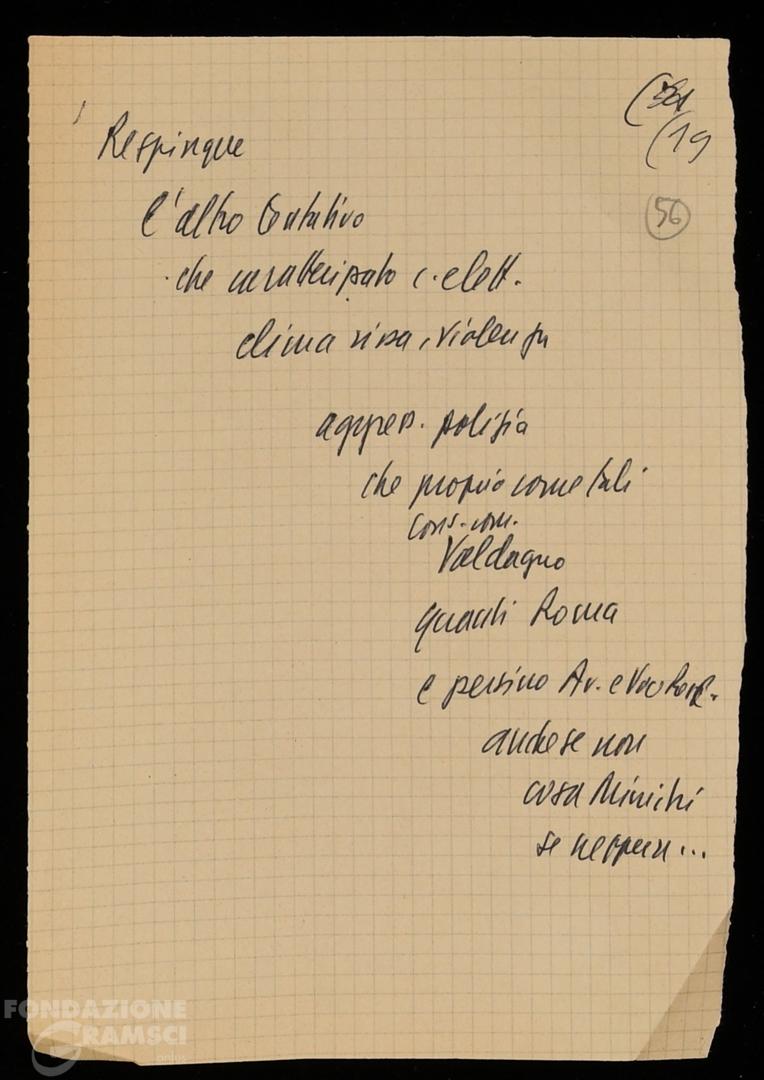 (19
56
Respingue
l'altro tentativo
che caratterizzato c. elett.
clima rissa, violenza
aggress. polizia
che proprio come tali
cons. com.
Valdagno
quanti Roma
e persino Av. e Voce Rep.
anche se non
cosa Ministri
se neppure...
FONDAZIONE
GRAMSCI
onlus